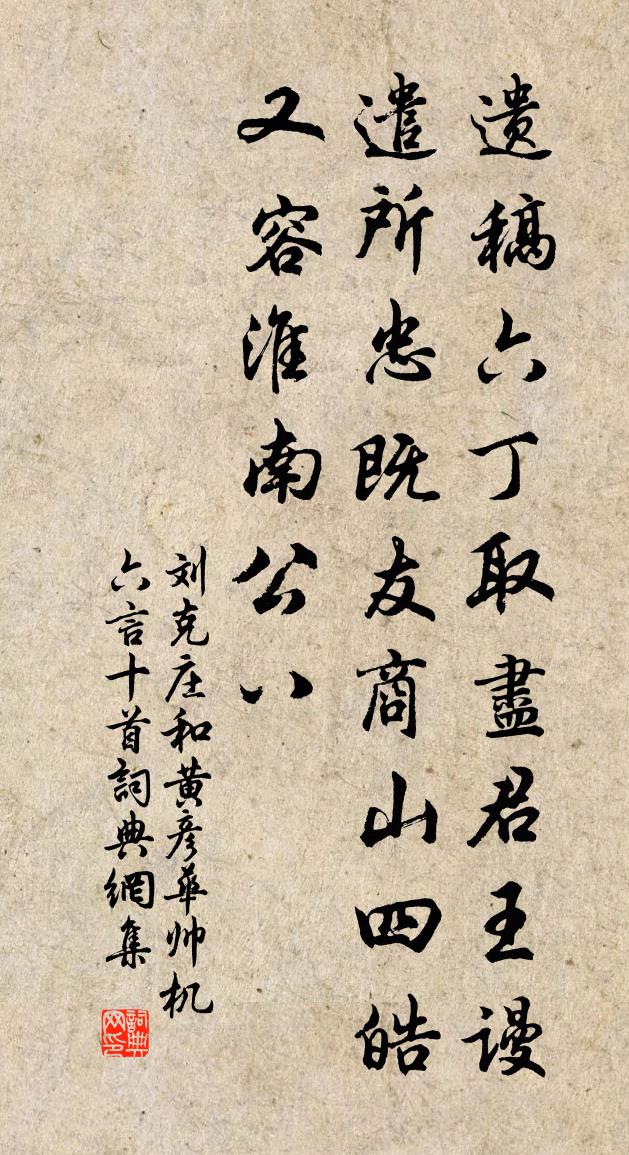 遗稿六丁取盡君王谩
遣所忠既友商山四皓
又容淮南公八
刘克庄和黄彦華帅机
六言十首詞典網集
詞典
网印